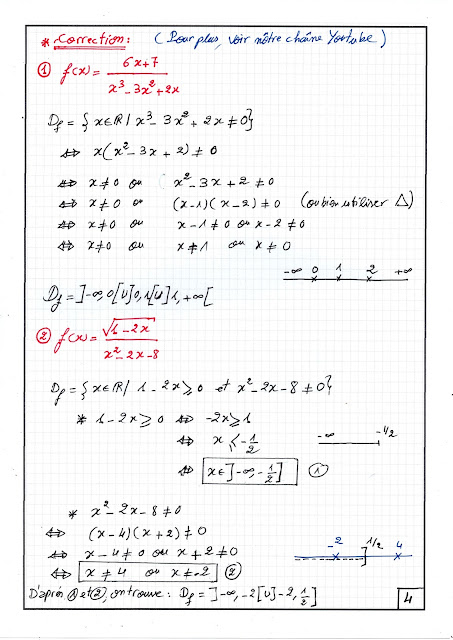 * Correction: (Pour plus, voir nôtre chaîne Youtube)
① f(x) = (6x+7)/(x³-3x²+2x)
Df = {x∈ℝ / x³-3x²+2x≠0}
⇔ x(x²-3x+2)≠0
⇔ x≠0 ou x²-3x+2≠0
⇔ x≠0 ou (x-1)(x-2)≠0 (ou bien utiliser △)
⇔ x≠0 ou x-1≠0 ou x-2≠0
⇔ x≠0 ou x≠1 ou x≠0
-∞ 0 1 2 +∞
Df = ]-∞,0[∪]0,1[∪]1,+∞[
② f(x) = √(1-2x)/(x²-2x-8)
Df = {x∈ℝ / 1-2x≥0 et x²-2x-8≠0}
* 1-2x≥0 ⇔ -2x≥1
⇔ x≤-1/2 -∞ -1/2
⇔ x∈]-∞,-1/2] ①
* x²-2x-8≠0
⇔ (x-4)(x+2)≠0
⇔ x-4≠0 ou x+2≠0 -2 1/2 4
⇔ x≠4 ou x≠-2 ②
D'après ① et ②, on trouve : Df = ]-∞,-2[∪]-2,1/2]
4